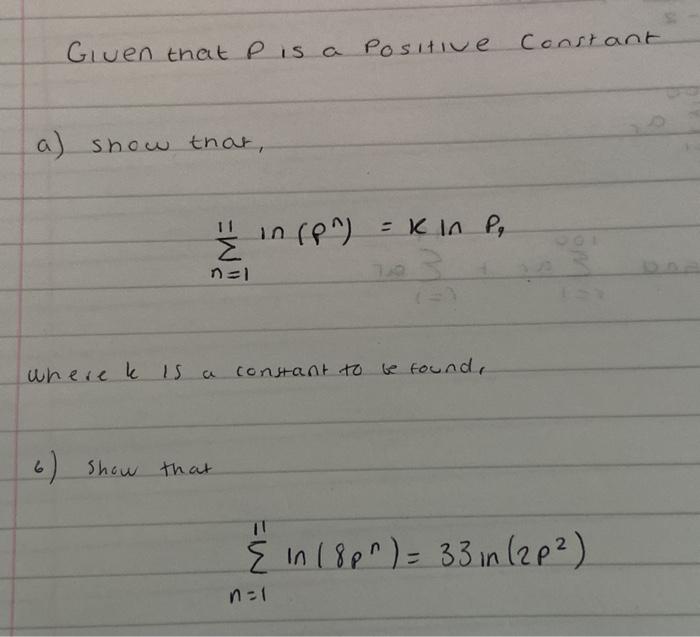 Given that P is a Positive Constant
a) show that,
11
∑ ln(pⁿ) = K ln P,
n=1
where k is a constant to be found,
b) Show that
11
∑ ln(8pⁿ) = 33 ln(2p²)
n=1